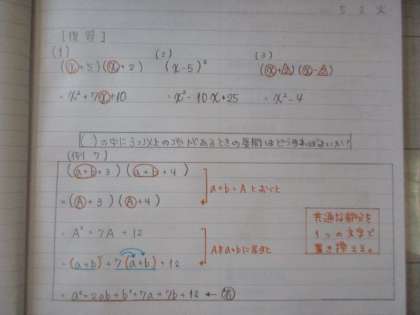 [復習]
(1) (2) (3)
(x+5)(x+2) (x-5)² (x+2)(x-2)
= x²+7x+10 = x²-10x+25 = x²-4
( )の中に3つ以上の項があるときの展開はどうすればよいか?
(例7)
(a+b+3)(a+b+4)
a+b=Aとおくと
= (A+3)(A+4)
= A²+7A+12
Aをa+bに戻すと
= (a+b)²+7(a+b)+12
= a²+2ab+b²+7a+7b+12 ←
共通な部分を
1つの文字で
置き換える。